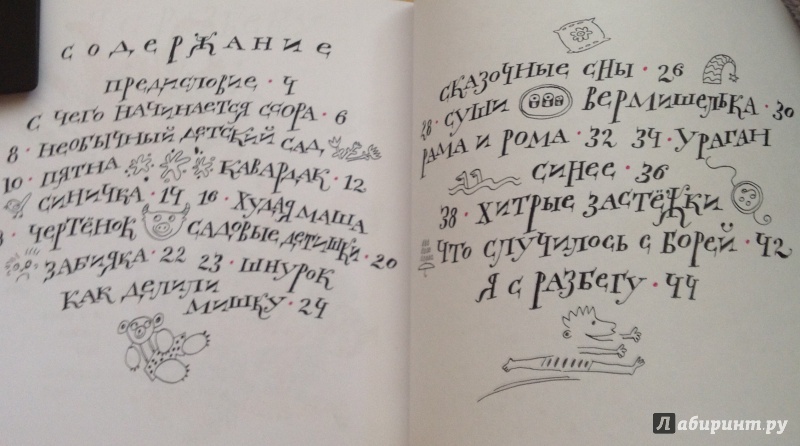 СОДЕРЖАНИЕ
ПРЕДИСЛОВИЕ · 4
С ЧЕГО НАЧИНАЕТСЯ ССОРА · 6
8 · НЕОБЫЧНЫЙ ДЕТСКИЙ САД
10 · ПЯТНА КАВАРДАК · 12
СИНИЧКА · 14 16 · ХУДАЯ МАША
· ЧЕРТЁНОК САДОВЫЕ ДЕТИШКИ · 20
ЗАБИЯКА · 22 23 · ШНУРОК
КАК ДЕЛИЛИ
МИШКУ · 24
СКАЗОЧНЫЕ СНЫ · 26
28 · СУШИ ВЕРМИШЕЛЬКА · 30
РАМА И РОМА · 32 34 · УРАГАН
СИНЕЕ · 36
38 · ХИТРЫЕ ЗАСТЁЖКИ
ЧТО СЛУЧИЛОСЬ С БОРЕЙ · 42
Я С РАЗБЕГУ · 44
Лабиринт.ру